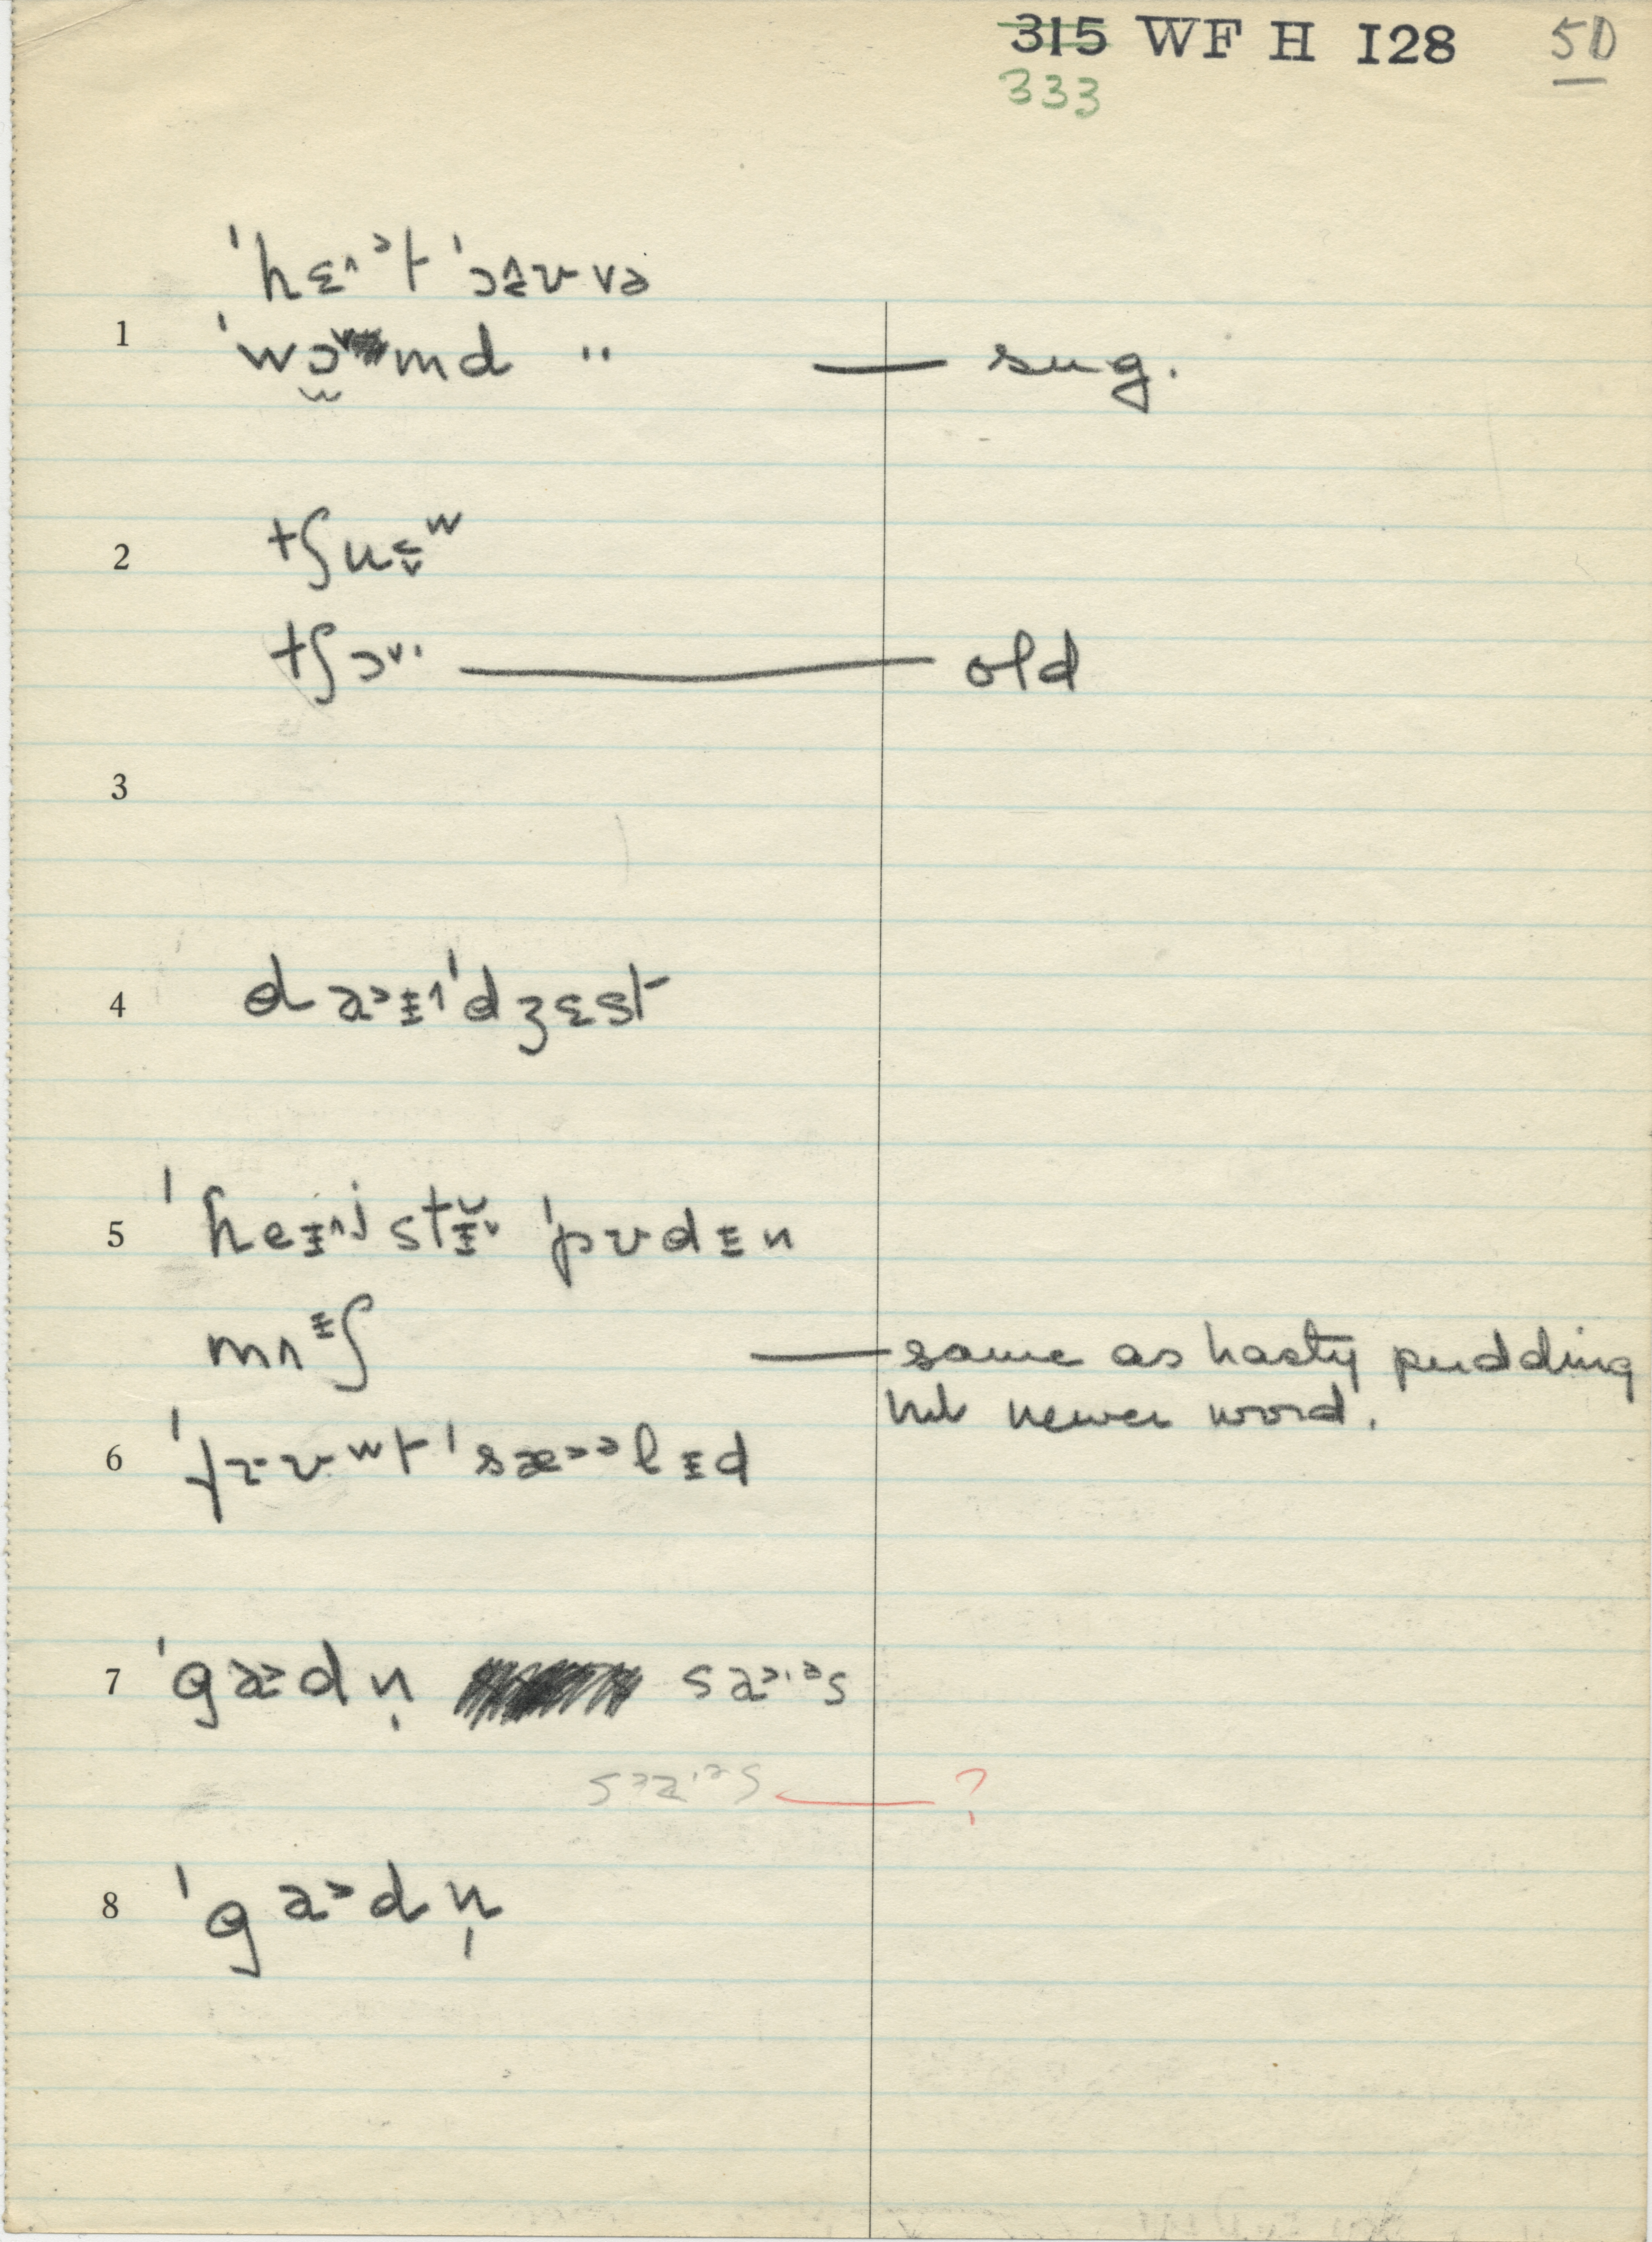 315 WF H I28 50
333
ˈhɛ˄ᵊt ˈɔ̜ʊ˅ə
1 ˈwɔ˅md " — sug.
2 tʃuɨʷ
tʃɔ˅· — old
3
4 daᵻˈdʒɛst
5 ˈheᵻʲstᵻ ˈpʊdᵻn
mʌᵻʃ — same as hasty pudding
but newer word.
6 ˈfrʊʷt ˈsæ˃ᵊlᵻd
7 ˈga˃dn̩ sa˃·ᵊs
sa˃·ᵊs — ?
8 ˈga˃dn̩